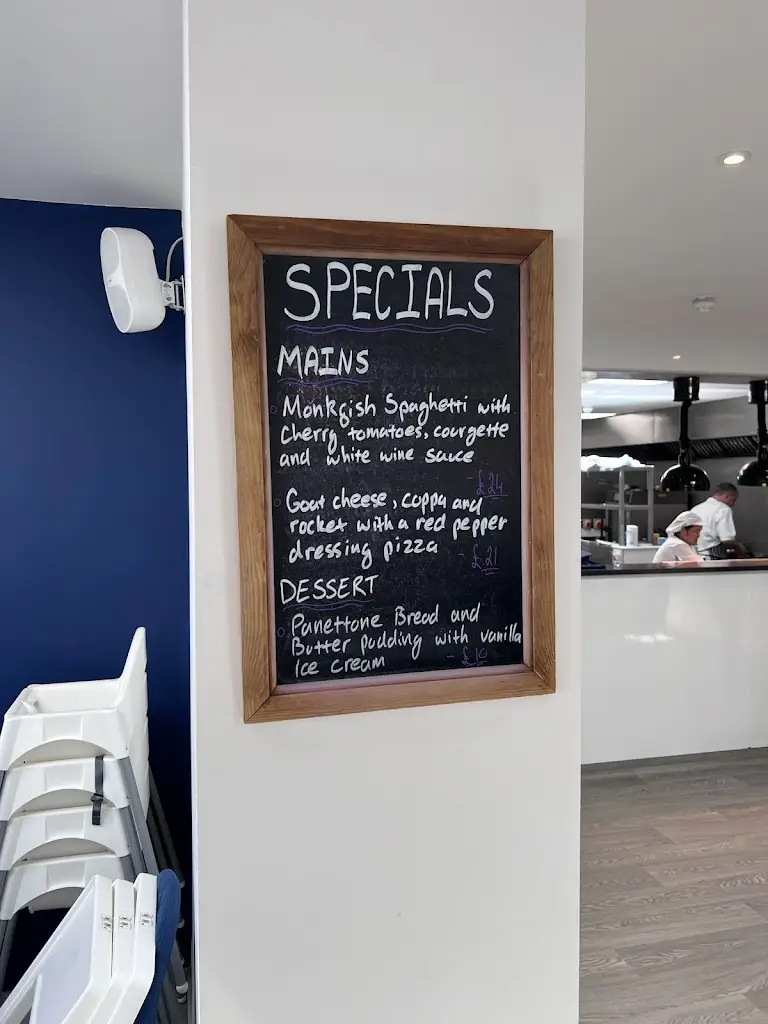 SPECIALS
MAINS
Monkfish Spaghetti with
cherry tomatoes, courgette
and white wine sauce
- £24
Goat cheese, coppa and
rocket with a red pepper
dressing pizza
- £21
DESSERT
Panettone Bread and
Butter pudding with vanilla
Ice cream
- £10